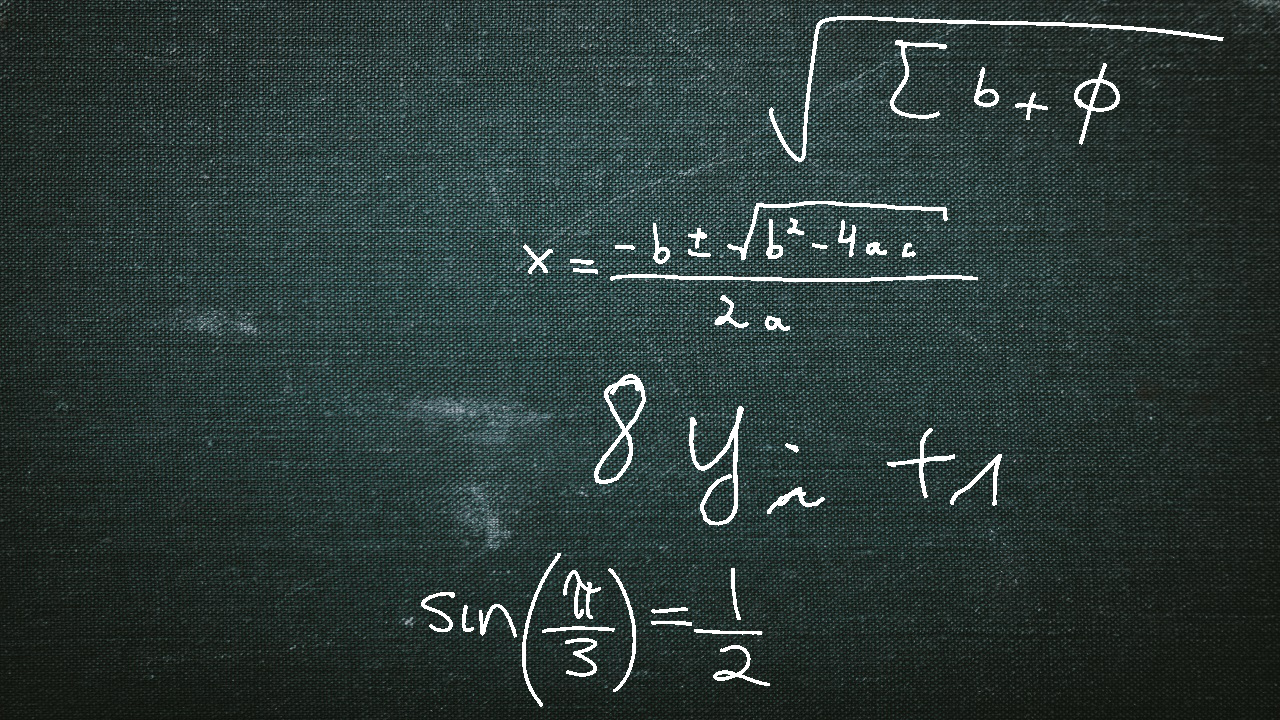 √(Σ b + ϕ)
x = (-b ± √(b² - 4ac)) / (2a)
8 yᵢ + 1
sin(π/3) = 1/2